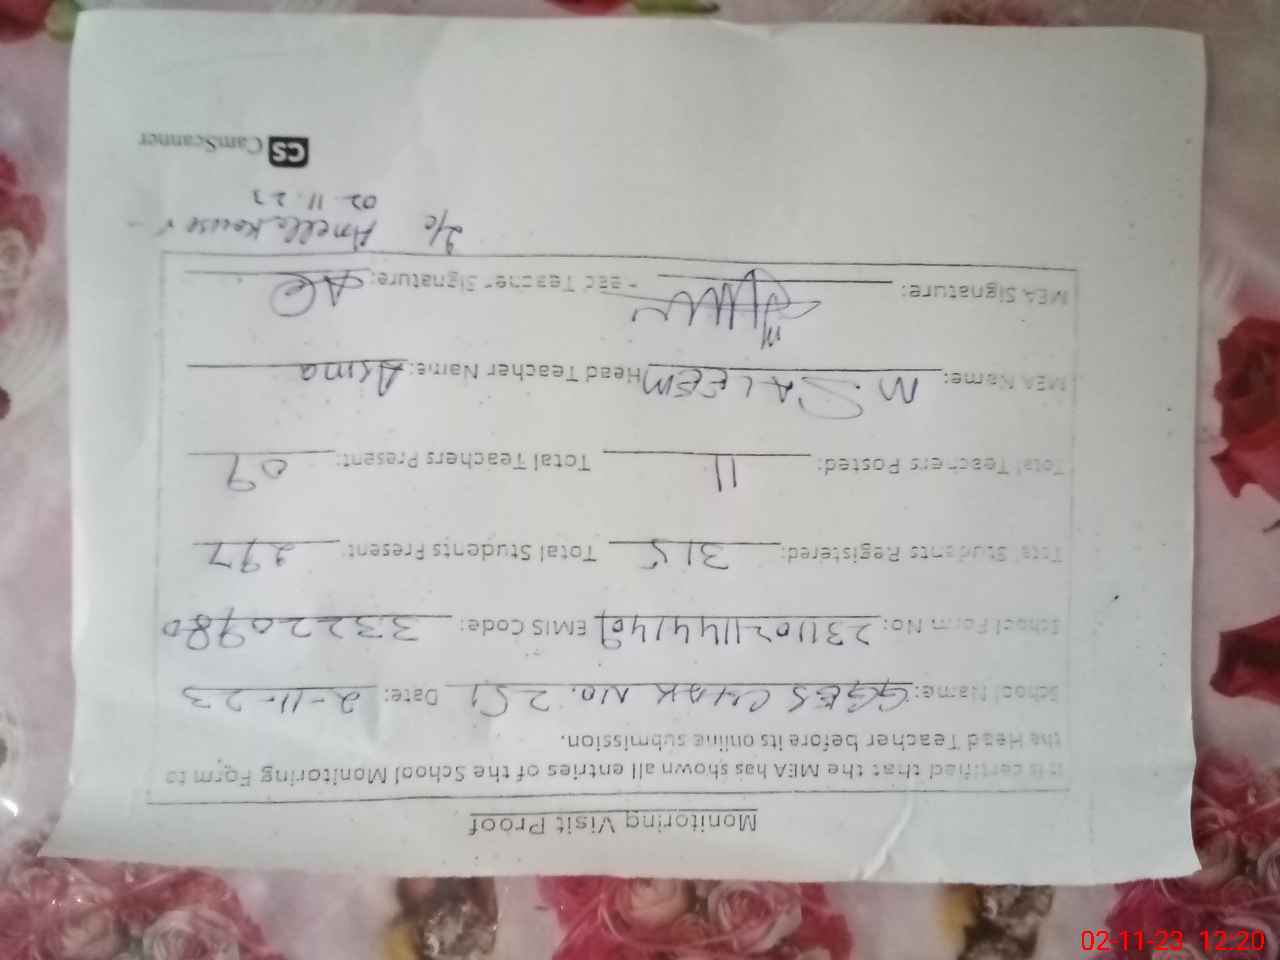 Monitoring Visit Proof
It is certified that the MEA has shown all entries of the School Monitoring Form to
the Head Teacher before its online submission.
School Name: GGES CHAK No. 251 Date: 2-11-23
School Form No: EMIS Code: 33220980
Total Students Registered: 315 Total Students Present: 297
Total Teachers Posted: 11 Total Teachers Present: 09
MEA Name: M. SALEEM Head Teacher Name: Asma
MEA Signature: Head Teacher Signature:
02.11.23
CS CamScanner
02-11-23 12:20